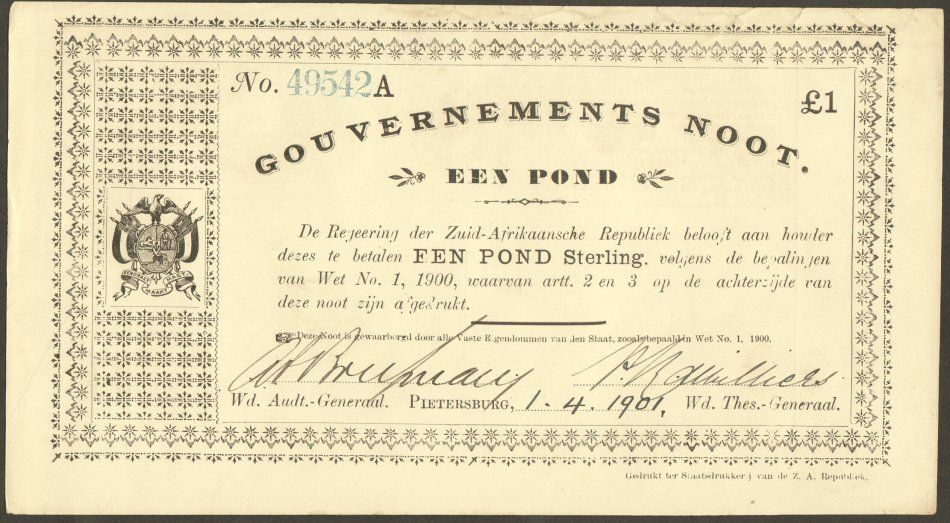 No. 49542 A
£1
GOUVERNEMENTS NOOT.
EEN POND
De Regeering der Zuid-Afrikaansche Republiek belooft aan houder
dezes te betalen EEN POND Sterling, volgens de bepalingen
van Wet No. 1, 1900, waarvan artt. 2 en 3 op de achterzijde van
deze noot zijn afgedrukt.
Deze Noot is gewaarborgd door alle Vaste Eigendommen van den Staat, zooals bepaald in Wet No. 1, 1900.
Wd. Audt.-Generaal. PIETERSBURG, 1. 4. 1901. Wd. Thes.-Generaal.
Gedrukt ter Staatsdrukkerij van de Z. A. Republiek.